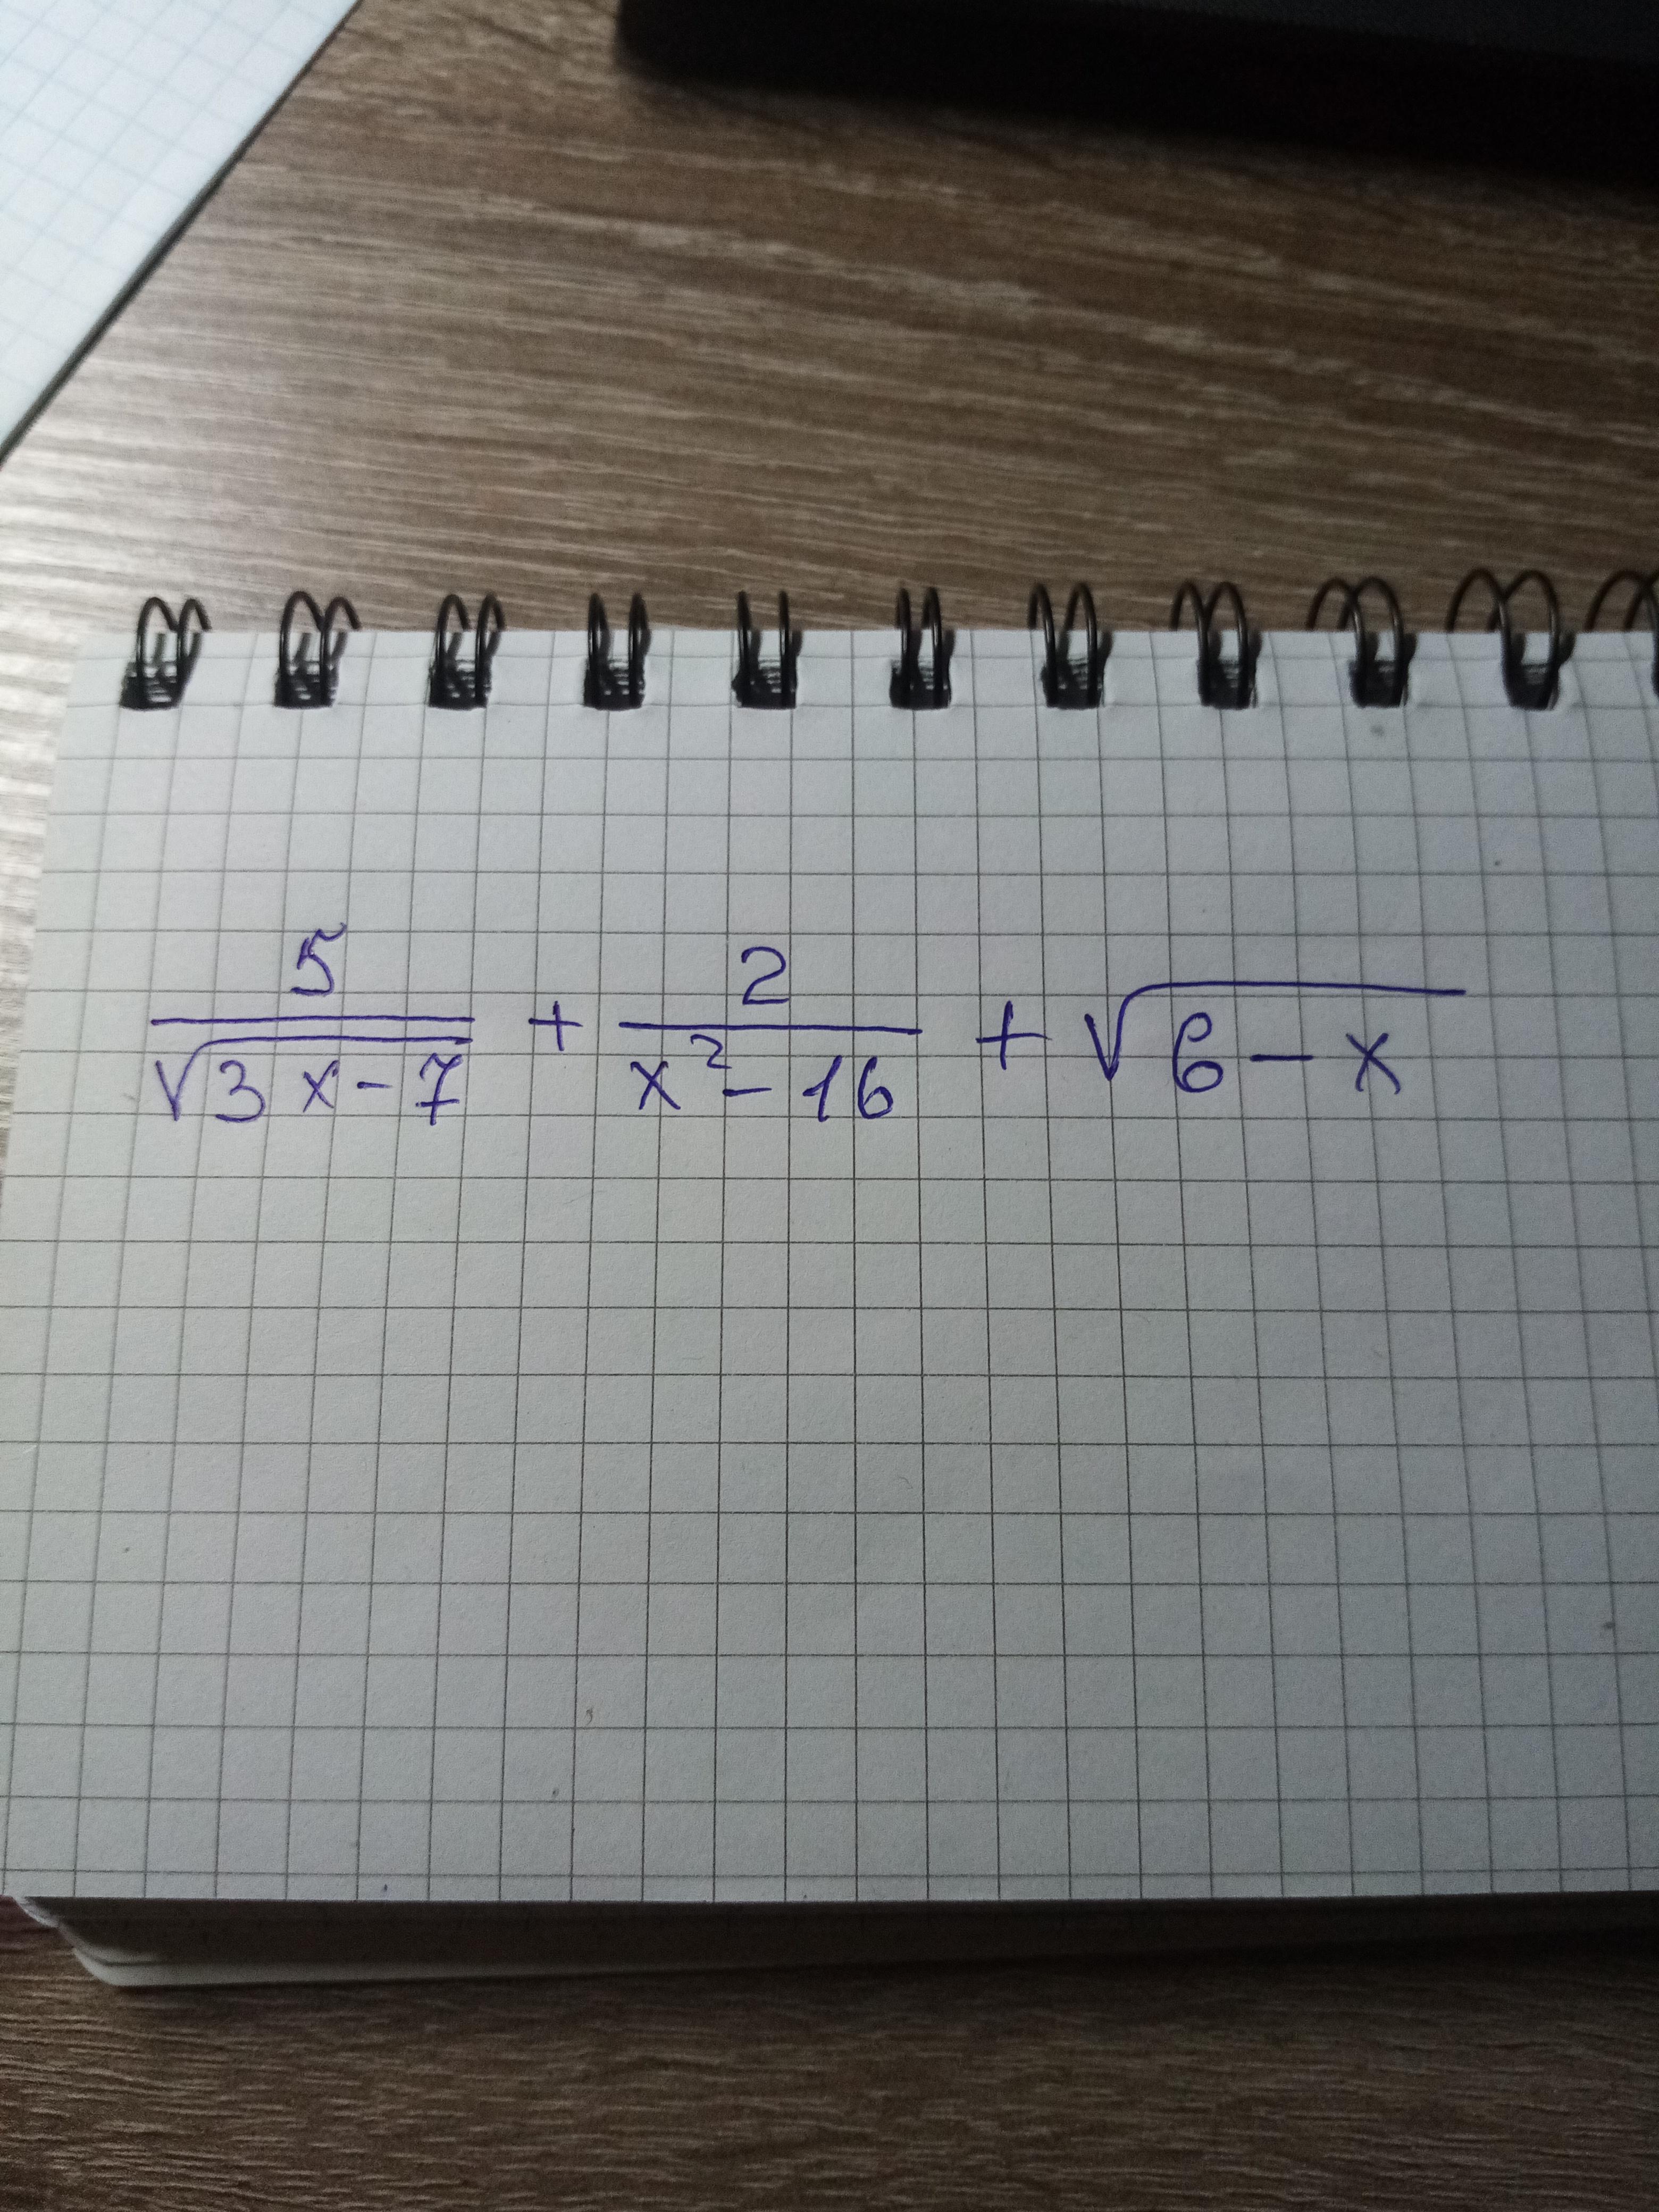 5/√(3x-7) + 2/(x²-16) + √(6-x)